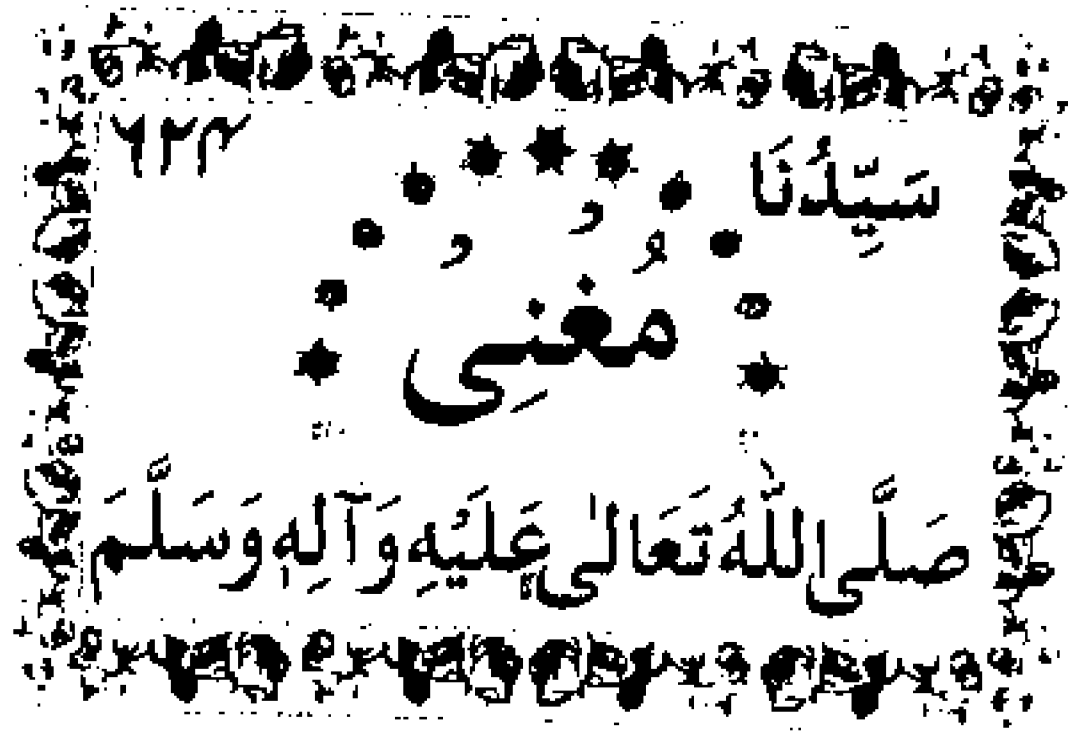 سَيِّدُنَا
۶۲۴
مُغْنِیْ
صَلَّى اللّٰهُ تَعَالىٰ عَلَيْهِ وَآلِهٖ وَسَلَّمَ